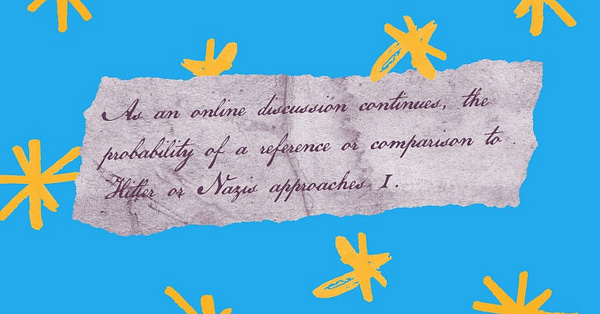 As an online discussion continues, the
probability of a reference or comparison to
Hitler or Nazis approaches 1.